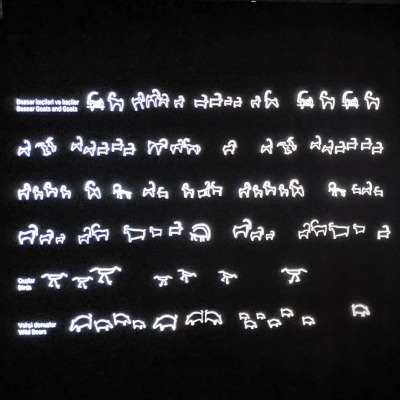 Bezoar keçiləri və keçilər
Bezoar Goats and Goats
Quşlar
Birds
Vəhşi donuzlar
Wild Boars